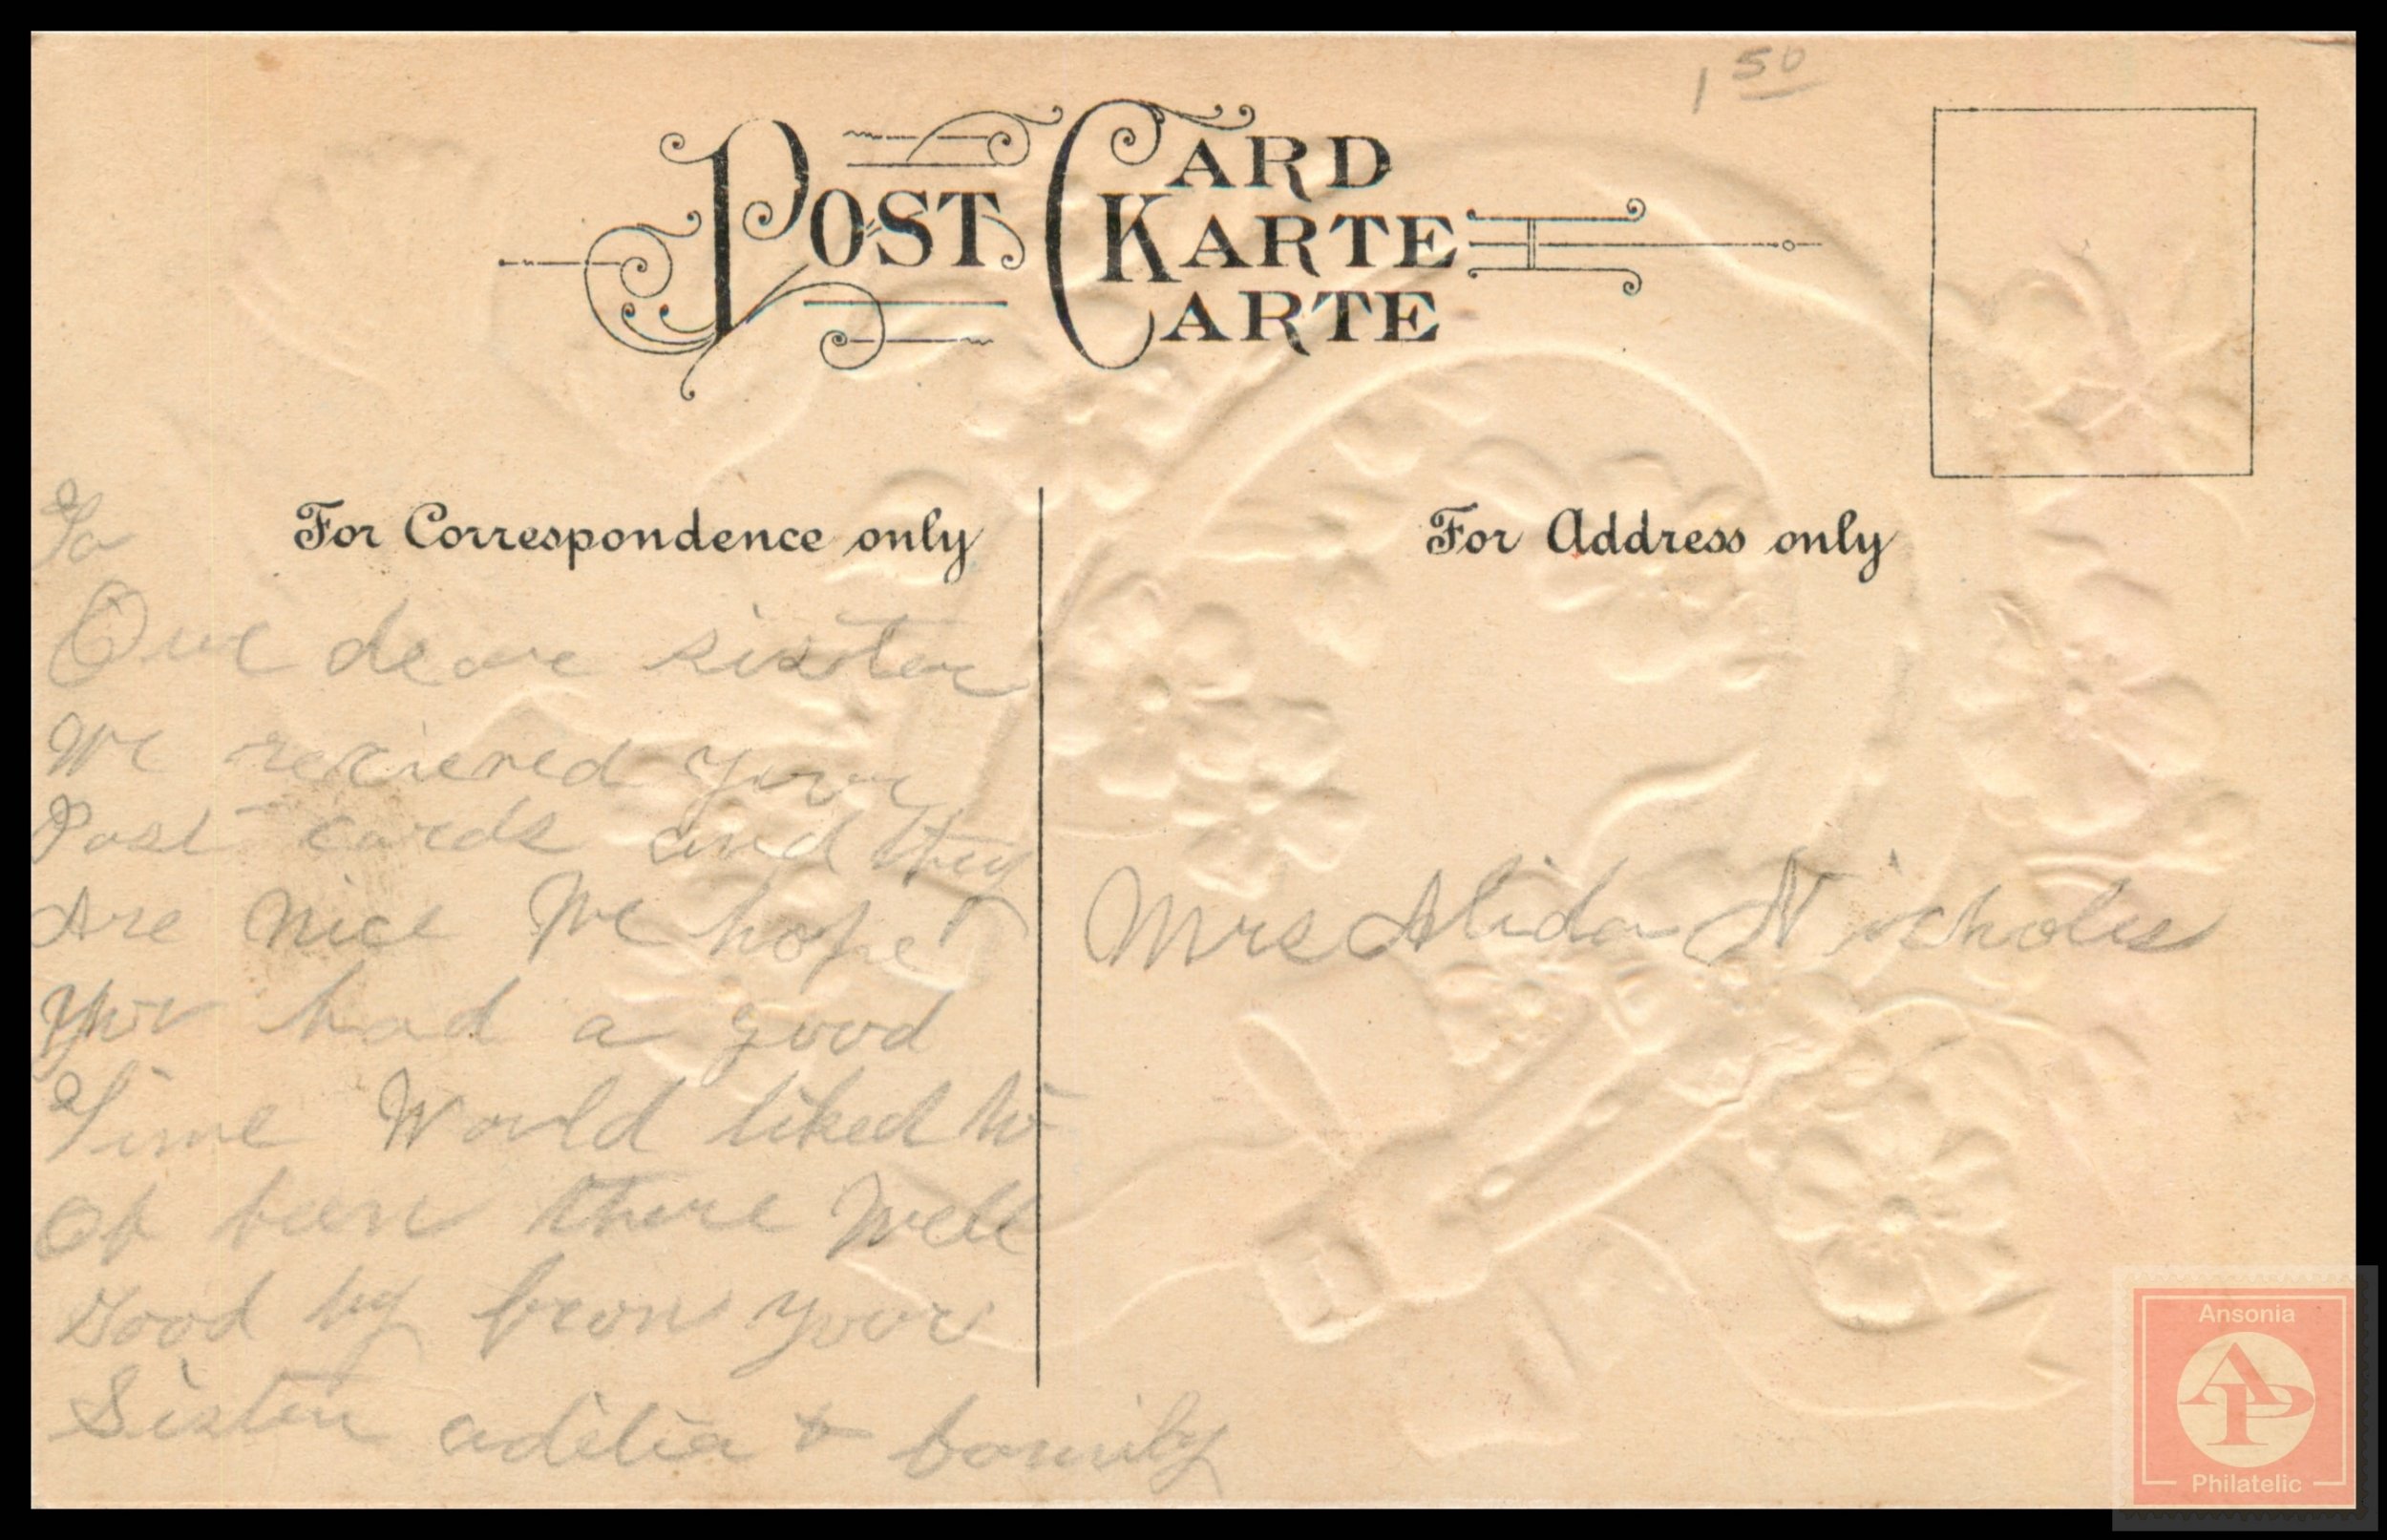 1 50
POST CARD
KARTE
CARTE
For Correspondence only
For Address only
To
Our deare sister
We recieved your
Post cards and they
Are nice We hope
You had a good
Time Would liked to
Of been there Well
Good by from your
Sister adelia & family
Mrs Alida Nicholes
Ansonia
AP
Philatelic